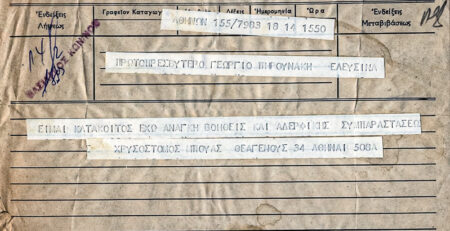 Ἐνδείξεις Λήψεως
Γραφεῖον Καταγωγ
Λέξεις
Ἡμερομηνία
Ὥρα
Ἐνδείξεις Μεταβιβάσεως
ΑΘΗΝΩΝ 155/7903 18 14 1550
ΠΡΩΤΟΠΡΕΣΒΥΤΕΡΟ ΓΕΩΡΓΙΟ ΠΗΡΟΥΝΑΚΗ ΕΛΕΥΣΙΝΑ
ΕΙΜΑΙ ΚΑΤΑΚΟΙΤΟΣ ΕΧΩ ΑΝΑΓΚΗ ΒΟΗΘΕΙΣ ΚΑΙ ΑΔΕΡΦΙΚΗΣ ΣΥΜΠΑΡΑΣΤΑΣΕΩ
ΧΡΥΣΟΣΤΟΜΟΣ ΜΠΟΥΑΣ ΘΕΑΓΕΝΟΥΣ 34 ΑΘΗΝΑΙ 508Α